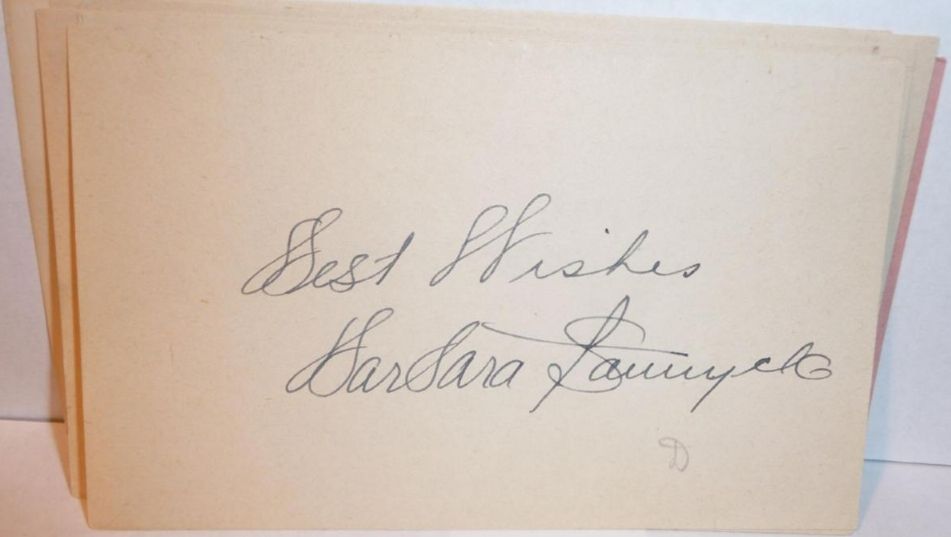 Best Wishes
Barbara Stanwyck
D